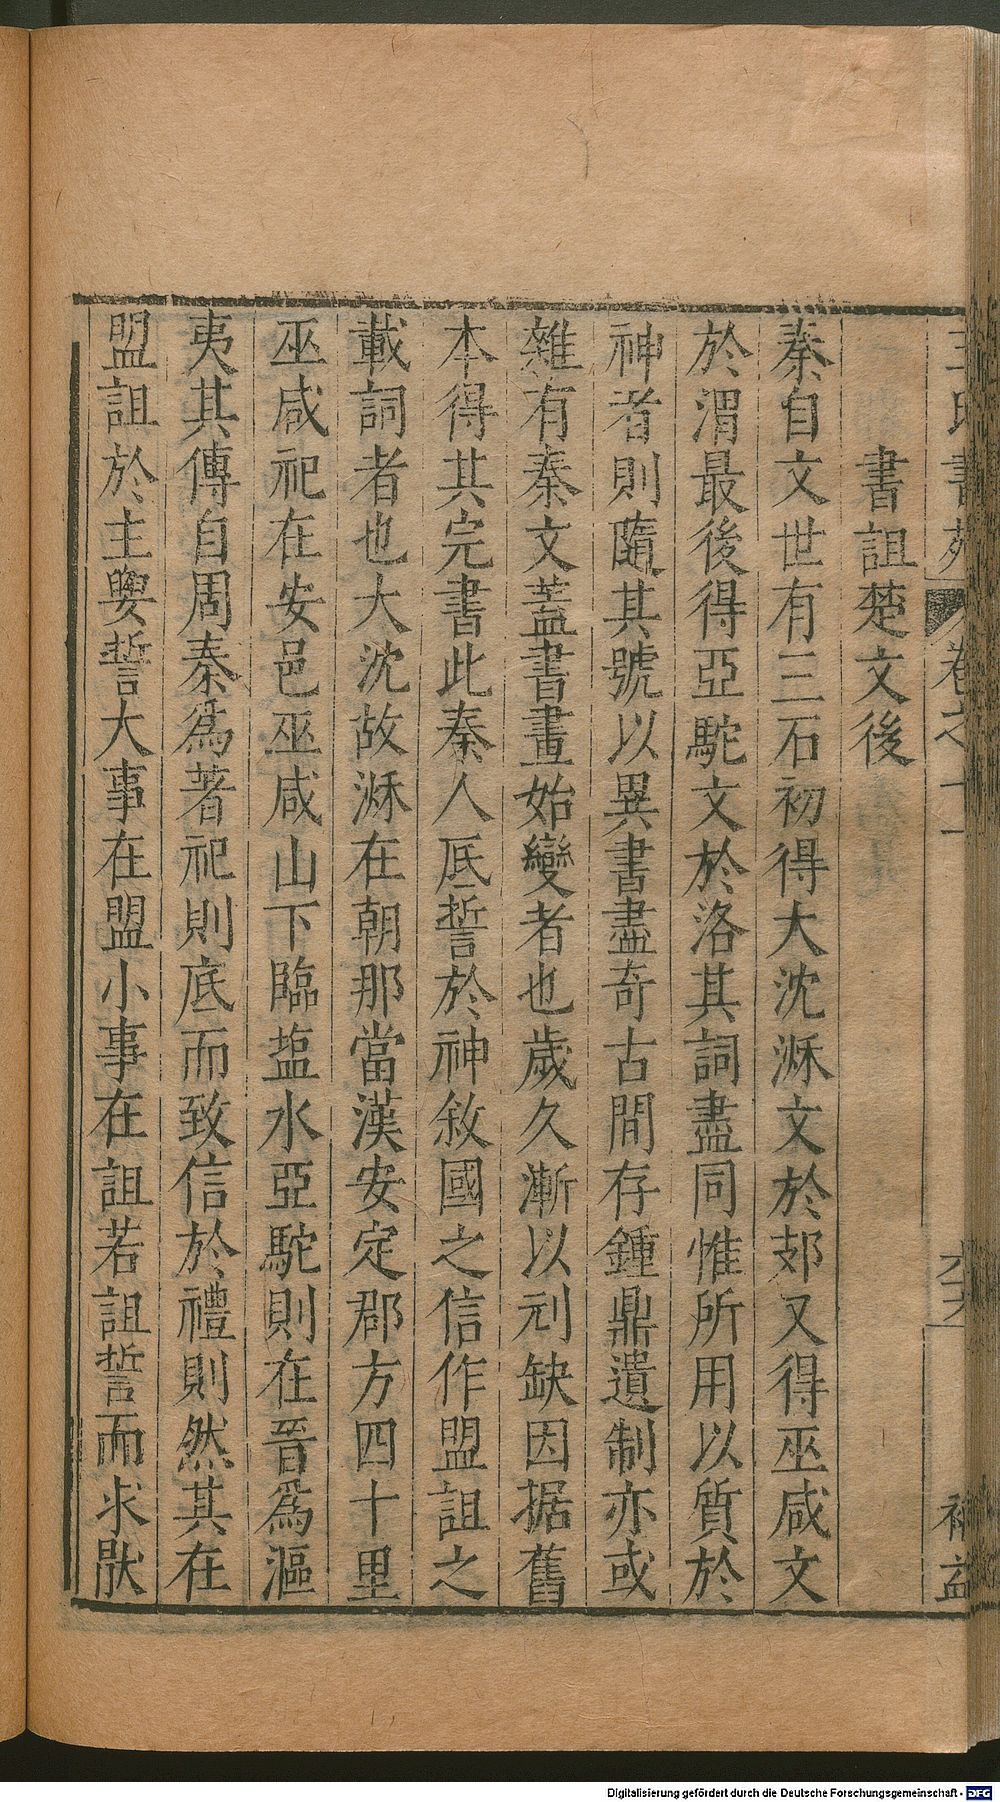 王氏書苑 卷之十一 六 補益
書詛楚文後
秦自文世有三石初得大沈湫文於郊又得巫咸文
於渭最後得亞駝文於洛其詞盡同惟所用以質於
神者則隨其號以異書盡奇古間存鍾鼎遺制亦或
雜有秦文蓋書畫始變者也歲久漸以刓缺因据舊
本得其完書此秦人厎誓於神敘國之信作盟詛之
載詞者也大沈故湫在朝那當漢安定郡方四十里
巫咸祀在安邑巫咸山下臨塩水亞駝則在晉為漚
夷其傳自周秦為著祀則底而致信於禮則然其在
盟詛於主要誓大事在盟小事在詛若詛誓而求猒
Digitalisierung gefördert durch die Deutsche Forschungsgemeinschaft - DFG